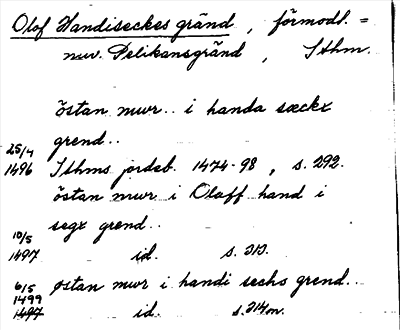 Olof Handiseckes gränd, förmodl. =
nuv. Pelikansgränd, Sthm.
östan mwr.. i handa sæckx
grend..
25/4
1496 Sthms jordeb. 1474-98, s. 292.
östan mwr i Olaff hand i
segx grend..
10/5
1497 id. s. 313.
6/5 östan mwr i handi sechs grend..
1499
1497 id. s. 314 m.